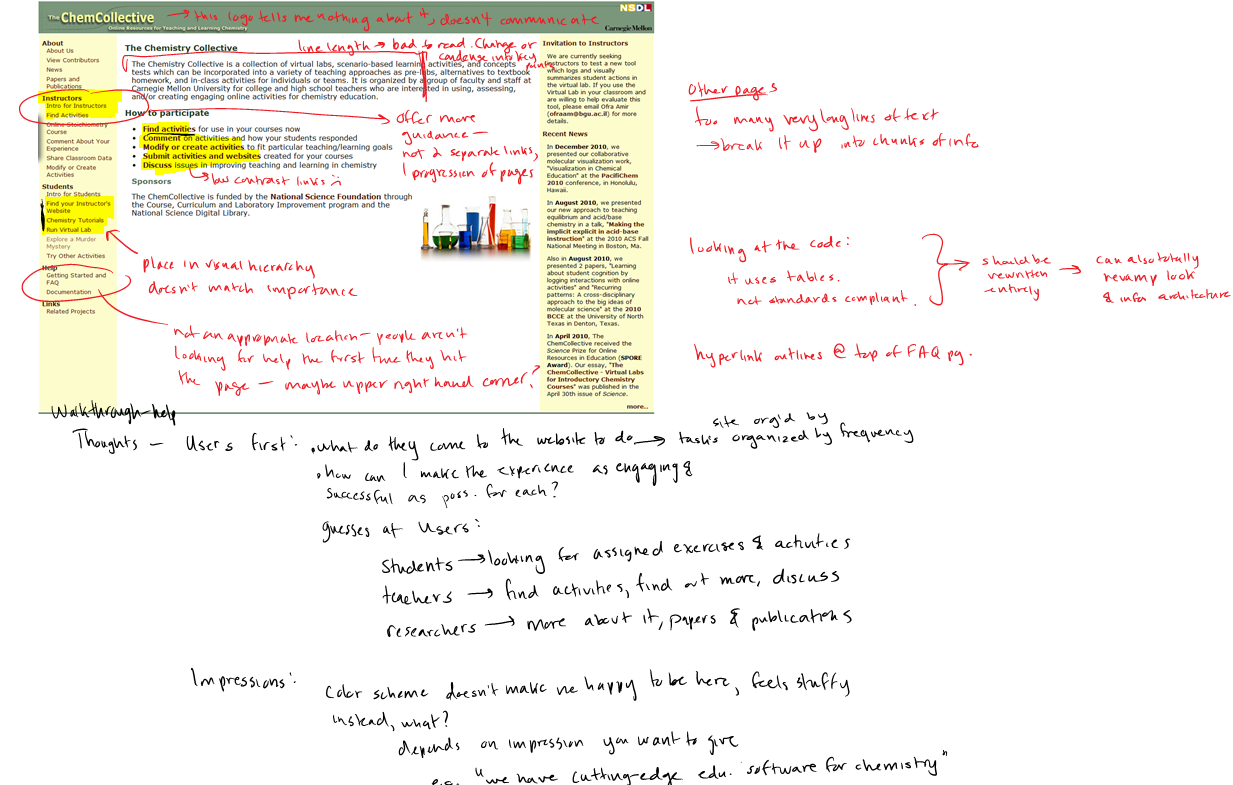 The ChemCollective
Online Resources for Teaching and Learning Chemistry
→ this logo tells me nothing about it, doesn't communicate
NSDL
Carnegie Mellon
About
About Us
View Contributors
News
Papers and
Publications
Instructors
Intro for Instructors
Find Activities
Online Stoichiometry
Course
Comment About Your
Experience
Share Classroom Data
Modify or Create
Activities
Students
Intro for Students
Find your Instructor's
Website
Chemistry Tutorials
Run Virtual Lab
Explore a Murder
Mystery
Try Other Activities
Help
Getting Started and
FAQ
Documentation
Links
Related Projects
The Chemistry Collective
line length → bad to read. Change or
condense into key
points
The Chemistry Collective is a collection of virtual labs, scenario-based learning activities, and concepts
tests which can be incorporated into a variety of teaching approaches as pre-labs, alternatives to textbook
homework, and in-class activities for individuals or teams. It is organized by a group of faculty and staff at
Carnegie Mellon University for college and high school teachers who are interested in using, assessing,
and/or creating engaging online activities for chemistry education.
How to participate
• Find activities for use in your courses now
• Comment on activities and how your students responded
• Modify or create activities to fit particular teaching/learning goals
• Submit activities and websites created for your courses
• Discuss issues in improving teaching and learning in chemistry
→ low contrast links :(
offer more
guidance —
not 2 separate links,
1 progression of pages
Sponsors
The ChemCollective is funded by the National Science Foundation through
the Course, Curriculum and Laboratory Improvement program and the
National Science Digital Library.
place in visual hierarchy
doesn't match importance
not an appropriate location — people aren't
looking for help the first time they hit
the page — maybe upper right hand corner?
Invitation to Instructors
We are currently seeking
instructors to test a new tool
which logs and visually
summarizes student actions in
the virtual lab. If you use the
Virtual Lab in your classroom and
are willing to help evaluate this
tool, please email Ofra Amir
(ofraam@bgu.ac.il) for more
details.
Recent News
In December 2010, we
presented our collaborative
molecular visualization work,
"Visualization in Chemical
Education" at the PacifiChem
2010 conference, in Honolulu,
Hawaii.
In August 2010, we presented
our new approach to teaching
equilibrium and acid/base
chemistry in a talk, "Making the
implicit explicit in acid-base
instruction" at the 2010 ACS Fall
National Meeting in Boston, Ma.
Also in August 2010, we
presented 2 papers, "Learning
about student cognition by
logging interactions with online
activities" and "Recurring
patterns: A cross-disciplinary
approach to the big ideas
of molecular science" at the 2010
BCCE at the University of North
Texas in Denton, Texas.
In April 2010, The
ChemCollective received the
Science Prize for Online
Resources in Education (SPORE
Award). Our essay, "The
ChemCollective - Virtual Labs
for Introductory Chemistry
Courses" was published in the
April 30th issue of Science.
more..
Other pages
too many very long lines of text
→ break it up into chunks of info
looking at the code:
it uses tables.
not standards compliant.
→ should be
rewritten
entirely
→ can also totally
revamp look
& info architecture
hyperlink outlines @ top of FAQ pg.
Walkthrough-help
Thoughts — Users first: • what do they come to the website to do → site org'd by
tasks organized by frequency
• how can I make the experience as engaging &
successful as poss. for each?
guesses at users:
students → looking for assigned exercises & activities
teachers → find activities, find out more, discuss
researchers → more about it, papers & publications
Impressions:
Color scheme doesn't make me happy to be here, feels stuffy
instead, what?
depends on impression you want to give
e.g. "we have cutting-edge edu. software for chemistry"